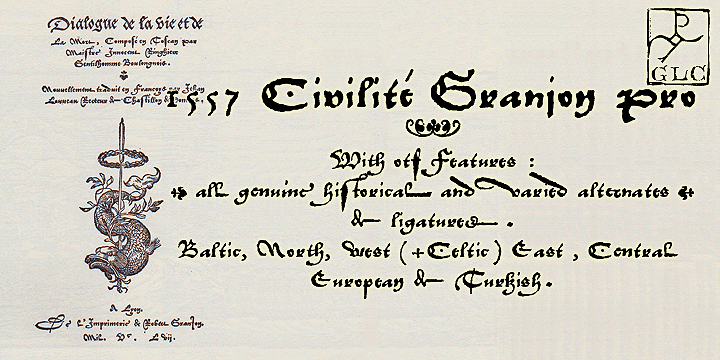 Dialogue de la vie et de
La Mort, Composé en Toscan par
Maistre Innocent Ringhiere
Gentilhomme Boulongnois.
Nouvellement traduit en Françoys par Jehan
Louveau Recteur de Chastillon de Dombes.
1557 Civilité Granjon Pro
GLC
With otf Features :
all genuine historical and varied alternates
& ligatures .
Baltic, North, West (+Celtic) East , Central
European & Turkish.
A Lyon.
De l'Imprimerie de Robert Granjon.
Mil. Vc. Lvij.